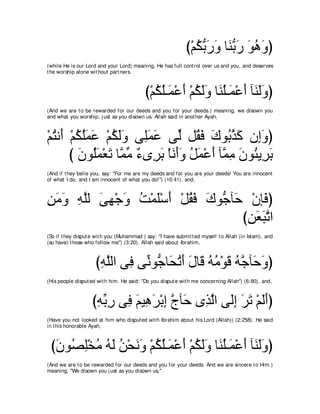 (وَهُوَ رَبُّنَا وَرَبُّكُمْ)
(while He is our Lord and your Lord) meaning, He has full control over us and you, and deserves
the worship alone without partners.
(وَلَنَآ أَعْمَـلُنَا وَلَكُمْ أَعْمَـلُكُمْ)
(And we are to be rewarded for our deeds and you for your deeds.) meaning, we disown you
and what you worship, just as you disown us. Allah said in another Ayah,
(وَإِن كَذَّبُوكَ فَقُل لِّى عَمَلِى وَلَكُمْ عَمَلُكُمْ أَنتُمْ
بَرِيئُونَ مِمَّآ أَعْمَلُ وَأَنَاْ بَرِىءٌ مِّمَّا تَعْمَلُونَ )
(And if they belie you, say: "For me are my deeds and for you are your deeds! You are innocent
of what I do, and I am innocent of what you do!") (10:41), and,
(فَإنْ حَآجُّوكَ فَقُلْ أَسْلَمْتُ وَجْهِىَ للَّهِ وَمَنِ
اتَّبَعَنِ)
(So if they dispute with you (Muhammad ) say: "I have submitted myself to Allah (in Islam), and
(so have) those who follow me") (3:20). Allah said about Ibrahim,
(وَحَآجَّهُ قَوْمُهُ قَالَ أَتُحَاجُّونِّى فِى اللَّهِ)
(His people disputed with him. He said: "Do you dispute with me concerning Allah") (6:80), and,
(أَلَمْ تَرَ إِلَى الَّذِى حَآجَّ إِبْرَهِيمَ فِى رِبِّهِ)
(Have you not looked at him who disputed with Ibrahim about his Lord (Allah)) (2:258). He said
in this honorable Ayah,
(وَلَنَآ أَعْمَـلُنَا وَلَكُمْ أَعْمَـلُكُمْ وَنَحْنُ لَهُ مُخْلِصُونَ)
(And we are to be rewarded for our deeds and you for your deeds. And we are sincere to Him.)
meaning, "We disown you just as you disown us,"